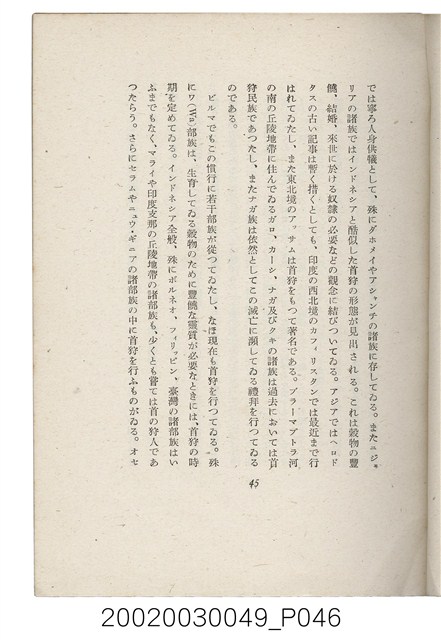 では寧ろ人身供犠として、殊にダホメイやアシャンチの諸族に存してゐる。またニジェ
リアの諸族ではインドネシアと酷似した首狩の形態が見出される。これは穀物の豐
饒、結婚、來世に於ける奴隷の必要などの觀念に結びついてゐる。アジアではヘロド
タスの古い記事は暫く措くとしても、印度の西北境のカフィリスタンでは最近まで行
はれてゐたし、また東北境のアッサムは首狩をもつて著名である。ブラーマプトラ河
の南の丘陵地帶に住んでゐるガロ、カーシ、ナガ及びクキの諸族は過去においては首
狩民族であつたし、またナガ族は依然としてこの滅亡に瀕してゐる禮拜を行つてゐる
のである。
ビルマでもこの慣行に若干部族が從つてゐたし、なほ現在も首狩を行つてゐる。殊
にワ(Wa)部族は、生育してゐる穀物のために豐饒な靈質が必要なときには、首狩の時
期を定めてゐる。インドネシア全般、殊にボルネオ、フィリッピン、臺灣の諸部族はい
ふまでもなく、マライや印度支那の丘陵地帶の諸部族も、少くとも嘗ては首の狩人であ
つたらう。さらにセラムやニュウ・ギニアの諸部族の中に首狩を行ふものがゐる。オセ
45
20020030049_P046